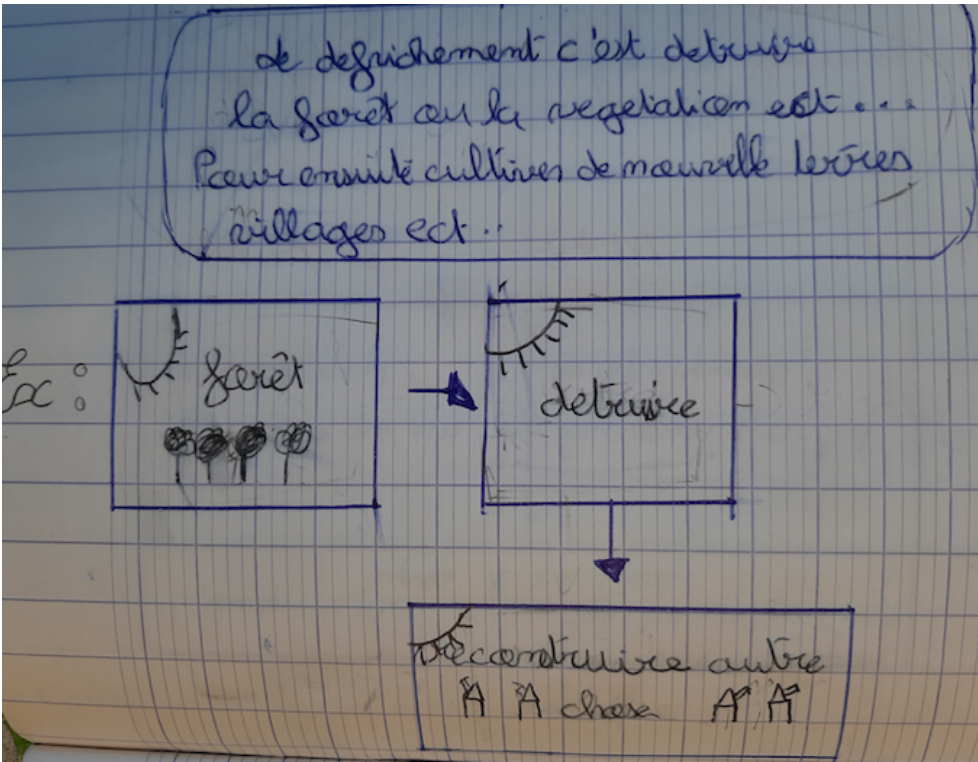 Le defrichement c'est detruire
la forêt ou la vegetation ect...
Pour ensuite cultiver de nouvelle terres
villages ect..
Ex :
forêt
detruire
reconstruire autre
chose